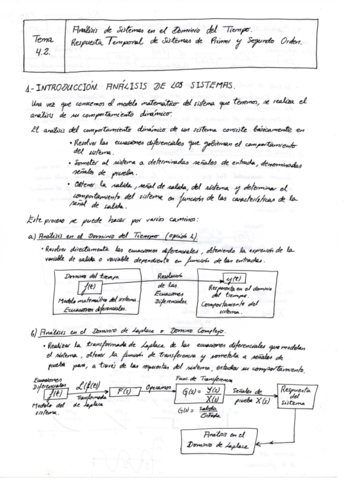 Tema
4.2.
Análisis de Sistemas en el Dominio del Tiempo.
Respuesta Temporal de Sistemas de Primer y Segundo Orden.
1.- INTRODUCCIÓN. ANÁLISIS DE LOS SISTEMAS.
Una vez que conocemos el modelo matemático del sistema que tenemos, se realiza el
análisis de su comportamiento dinámico.
El análisis del comportamiento dinámico de un sistema consiste básicamente en
• Resolver las ecuaciones diferenciales que gobiernan el comportamiento
del sistema.
• Someter al sistema a determinadas señales de entrada, denominadas
señales de prueba.
• Obtener la salida, señal de salida, del sistema y determinar el
comportamiento del sistema en función de las características de la
señal de salida.
Este proceso se puede hacer por varios caminos:
a) Análisis en el Dominio del Tiempo (opción 1)
• Resolver directamente las ecuaciones diferenciales, obteniendo la expresión de la
variable de salida o variable dependiente en función de las entradas.
Dominio del tiempo
f(t)
Modelo matemático del sistema
Ecuaciones diferenciales.
Resolución
de las
Ecuaciones
Diferenciales
y(t)
Respuesta en el dominio
del tiempo.
Comportamiento del
sistema.
b) Análisis en el Dominio de Laplace o Dominio Complejo.
• Realizar la transformada de Laplace de las ecuaciones diferenciales que modelan
el sistema, obtener la función de transferencia y someterla a señales de
prueba para, a través de las respuestas del sistema, estudiar su comportamiento.
Ecuaciones
Diferenciales
f(t)
Modelo del
sistema.
L(f(t))
Transformada
de Laplace
F(s)
Operamos
Func. de Transferencia
G(s) = Y(s)/X(s)
G(s) = Salida/Entrada
Señales de
prueba X(s)
Respuesta
del
Sistema
Análisis en el
Dominio de Laplace